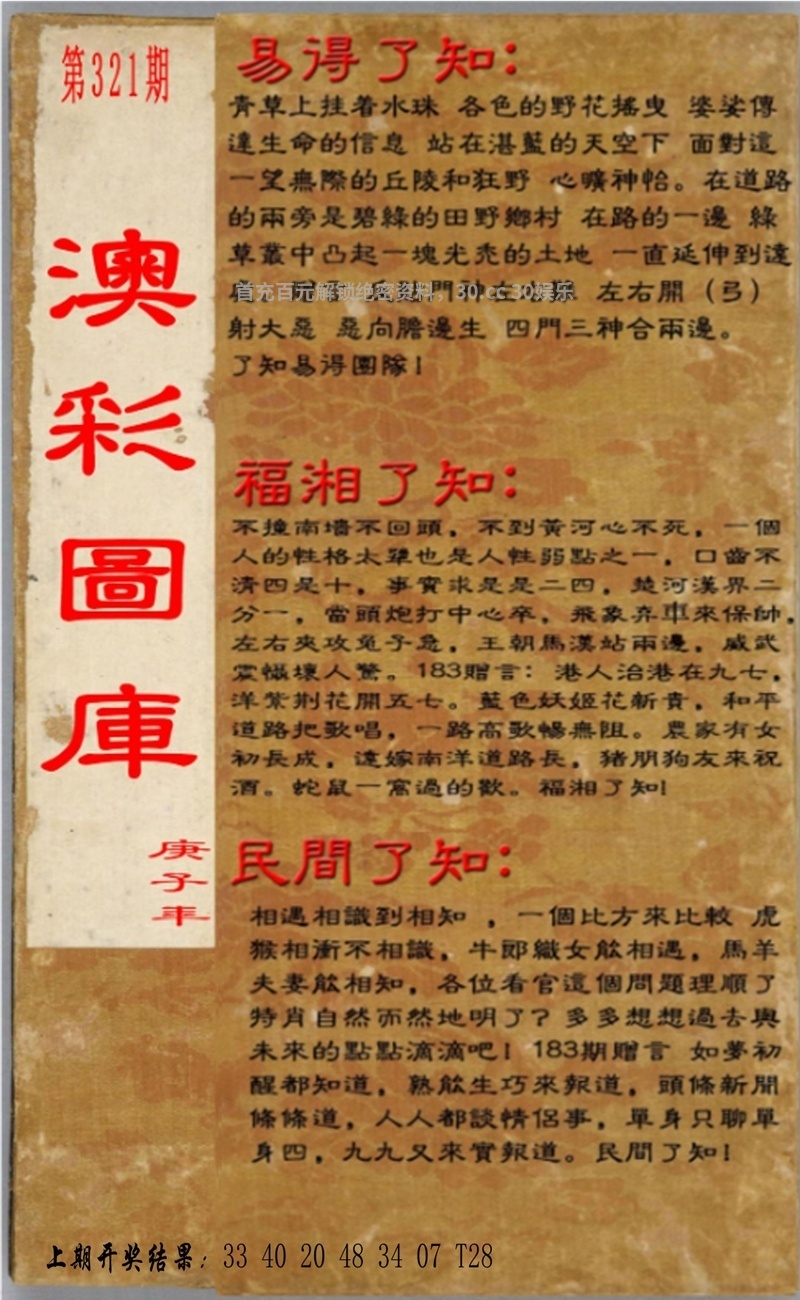 第321期
澳
彩
圖
庫
庚
子
年
易得了知：
青草上挂着水珠 各色的野花搖曳 婆娑傳
達生命的信息 站在湛藍的天空下 面對這
一望無際的丘陵和狂野 心曠神怡。在道路
的兩旁是碧綠的田野鄉村 在路的一邊 綠
草叢中凸起一塊光禿的土地 一直延伸到遠
左右開（弓）
首充百元解锁绝密资料，30.cc 30娱乐
射大惡 惡向膽邊生 四門三神合兩邊。
了知易得團隊！
福湘了知：
不撞南墻不回頭，不到黃河心不死，一個
人的性格太犟也是人性弱點之一，口齒不
清四是十，事實求是是二四，楚河漢界二
分一，當頭炮打中心卒，飛象弃車來保帥，
左右夾攻兔子急，王朝馬漢站兩邊，威武
震懾壞人驚。183贈言：港人治港在九七，
洋紫荆花開五七。藍色妖姬花新貴，和平
道路把歌唱，一路高歌暢無阻。農家有女
初長成，遠嫁南洋道路長，豬朋狗友來祝
酒。蛇鼠一窩過的歡。福湘了知！
民間了知：
相遇相識到相知 ，一個比方來比較 虎
猴相衝不相識，牛郎織女能相遇，馬羊
夫妻能相知，各位看官這個問題理順了
特肖自然而然地明了？多多想想過去與
未來的點點滴滴吧！183期贈言 如夢初
醒都知道，熟能生巧來報道，頭條新聞
條條道，人人都談情侶事，單身只聊單
身四，九九又來實報道。民間了知！
上期开奖结果：33 40 20 48 34 07 T28